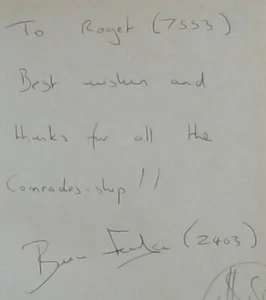 To Roget (7553)
Best wishes and
thanks for all the
Comrades-ship !!
(2403)